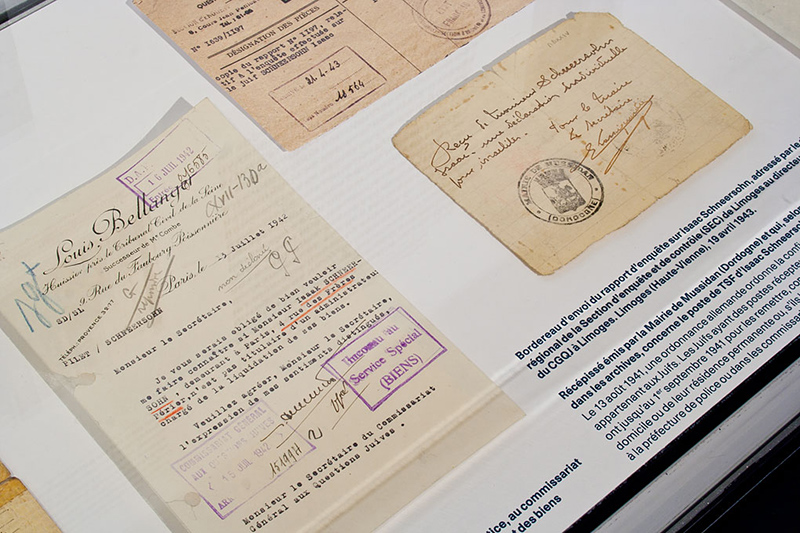 8, Cours Jean Pénicaud
TÉL.: 61-86
N° 1639/1197
DÉSIGNATION DES PIÈCES
Copie du rapport N° 1197, relatif à l'enquête effectuée sur
le juif SCHNEERSOHN Isaac
21-4-43
18564
Reçu de Monsieur Schneersohn
Isaac une déclaration individuelle
pour israélite.
Pour le Maire
Le Secrétaire
MAIRIE DE MUSSIDAN
(DORDOGNE)
D.A.
16 JUIL 1942
Louis Bellanger
Huissier près le Tribunal Civil de la Seine
Successeur de Me Combe
9, Rue du Faubourg Poissonnière
XVII-130a
Paris, le 13 Juillet 1942
TÉLÉPH. PROVENCE 3977
SD/SL
non déclaré
PILET / SCHNEERSOHN
Monsieur le Secrétaire,
Je vous serais obligé de bien vouloir
me faire connaître si Monsieur Isaac SCHNEER-
SOHN demeurant à Paris, 1 rue des Frères
Périer, n'est pas titulaire d'un administrateur
chargé de la liquidation de ses biens.
Veuillez agréer, Monsieur le Secrétaire,
l'expression de mes sentiments distingués.
Nouveau au
Service Spécial
(BIENS)
COMMISSARIAT GÉNÉRAL
AUX QUESTIONS JUIVES
15 JUIL 1942
Monsieur le Secrétaire du Commissariat
Général aux Questions Juives.
Bordereau d'envoi du rapport d'enquête sur Isaac Schneersohn, adressé par le
régional de la Section d'enquête et de contrôle (SEC) de Limoges au directeu
du CGQJ à Limoges, Limoges (Haute-Vienne), 19 avril 1943.
Récépissé émis par la Mairie de Mussidan (Dordogne) et qui, selo
dans les archives, concerne le poste de TSF d'Isaac Schneerso
Le 13 août 1941, une ordonnance allemande ordonne la confi
appartenant aux Juifs. Les Juifs ayant des postes récepte
ont jusqu'au 1er septembre 1941 pour les remettre, co
domicile ou de leur résidence permanente ou, s'ils
à la préfecture de police ou dans les commissa
tice, au commissariat
t des biens